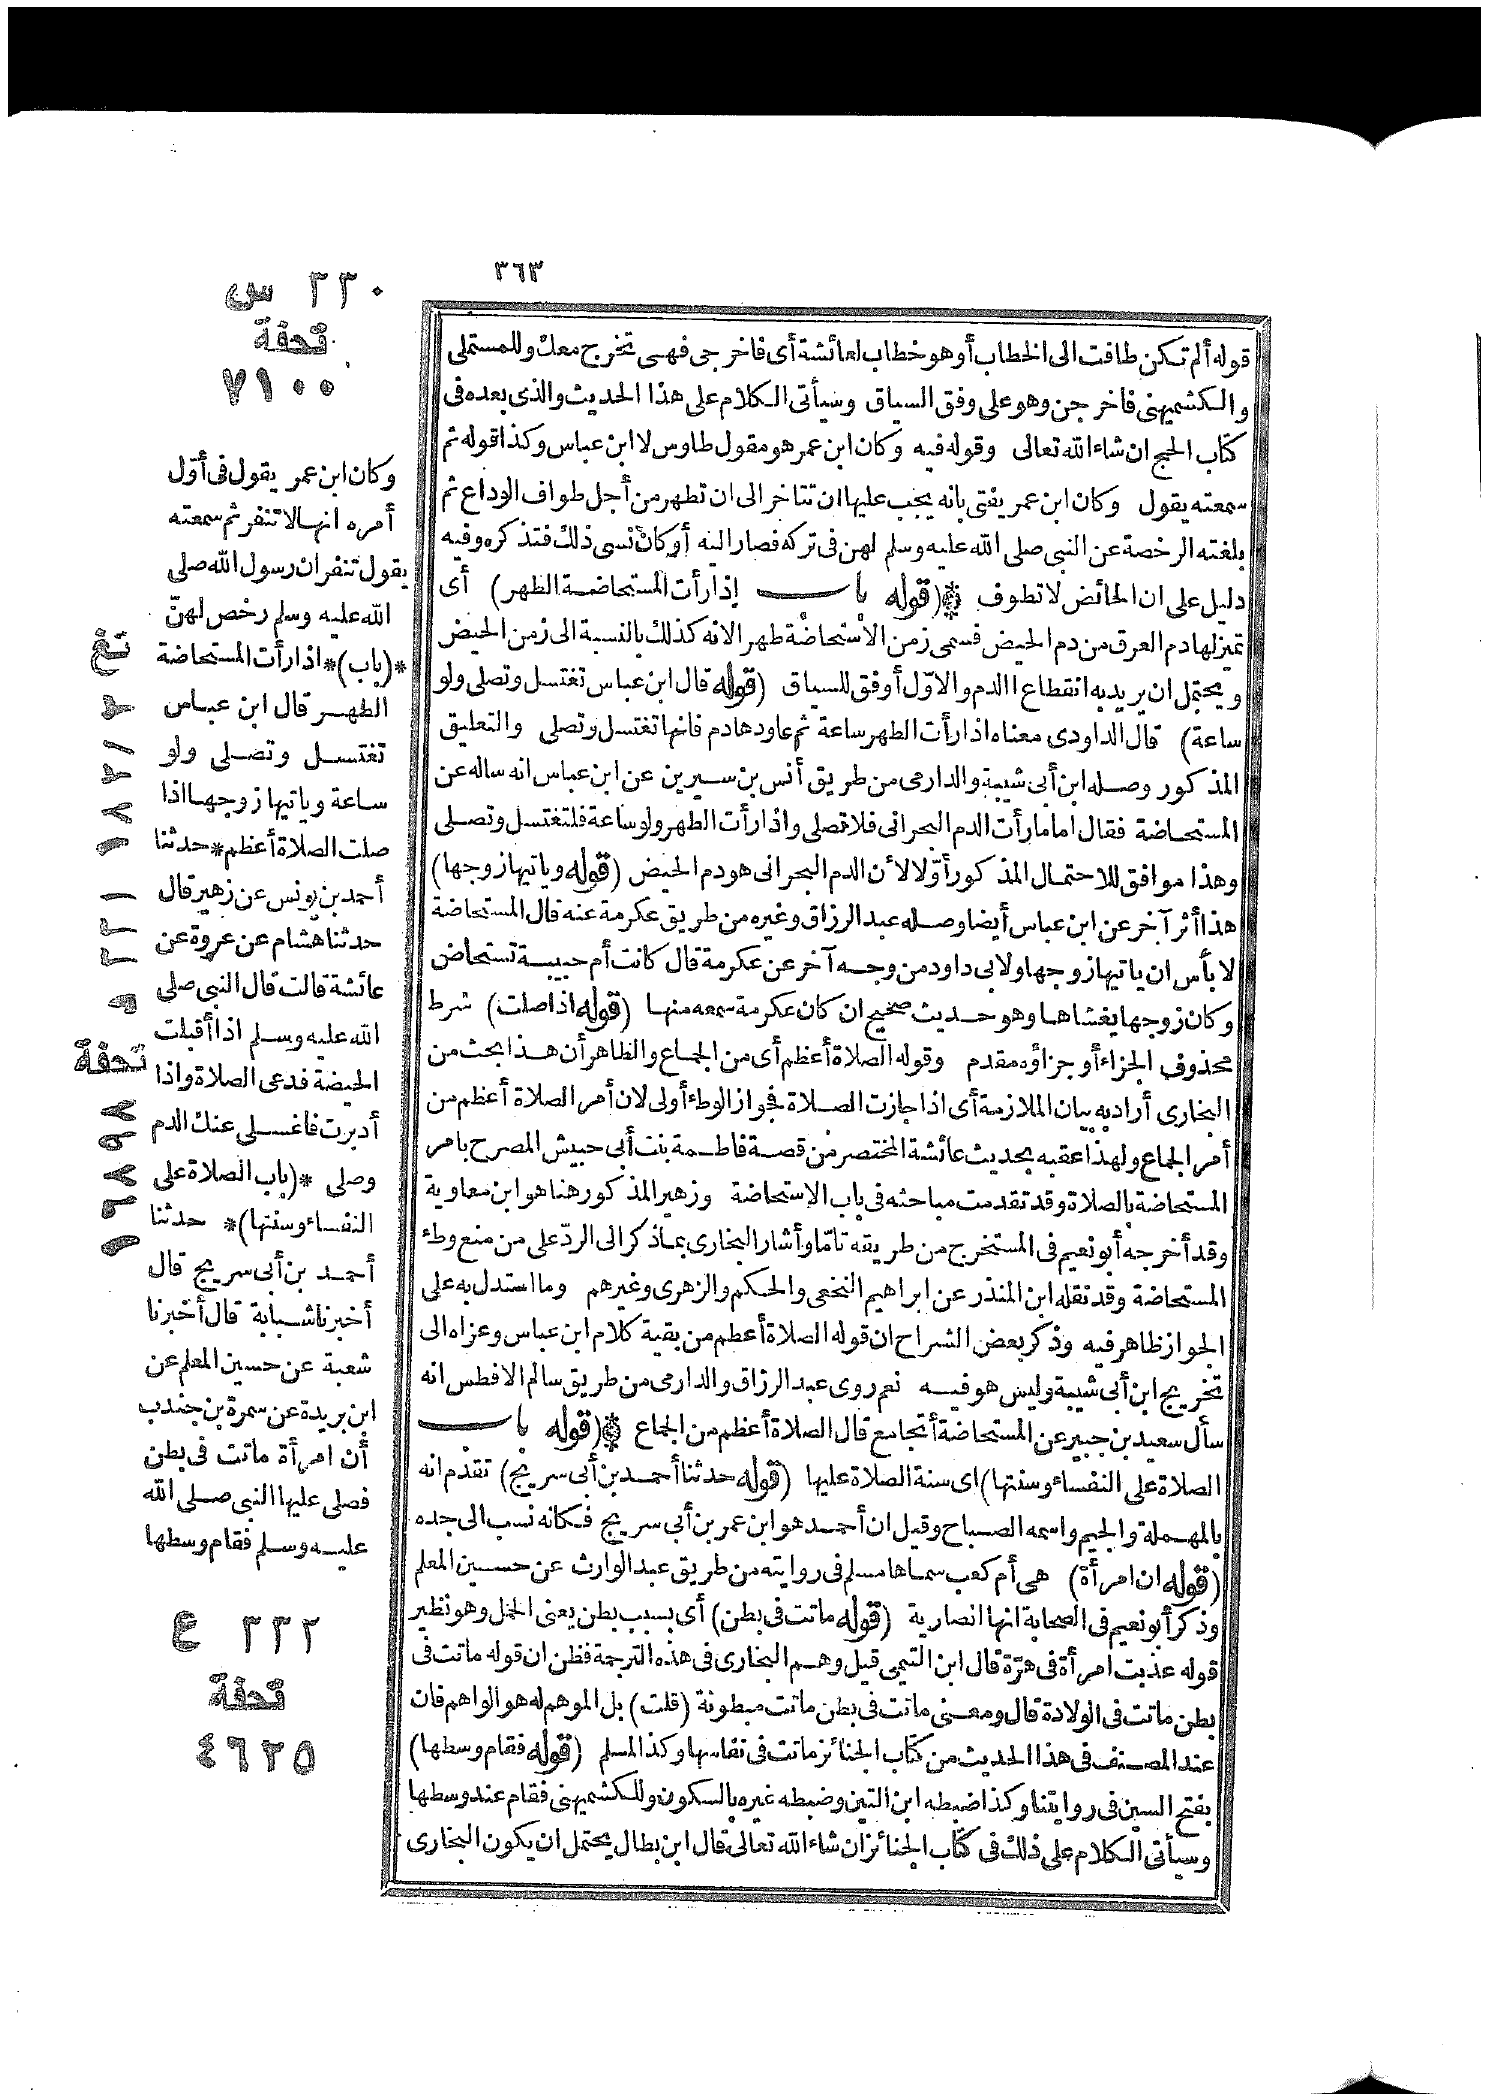 ٣٦٣
قوله ألم تكن طافت الى الخطاب أو هو خطاب لعائشة أى فاخرجى فهى تخرج معك وللمستملى
والكشميهنى فاخرجن وهو على وفق السياق وسيأتى الكلام على هذا الحديث والذى بعده فى
كتاب الحج ان شاء الله تعالى وقوله فيه وكان ابن عمر هو مقول طاوس لا ابن عباس وكذا قوله ثم
سمعته يقول وكان ابن عمر يفتى بانه يجب عليها ان تتاخر الى ان تطهر من أجل طواف الوداع ثم
بلغته الرخصة عن النبى صلى الله عليه وسلم لهن فى تركه فصار اليه أو كان نسى ذلك فتذكره وفيه
دليل على ان الحائض لا تطوف ۞(قوله باب إذا رأت المستحاضة الطهر) أى
تميز لها دم العرق من دم الحيض فسمى زمن الاستحاضة طهرا لانه كذلك بالنسبة الى زمن الحيض
ويحتمل ان يريد به انقطاع الدم والاوّل أوفق للسياق (قوله قال ابن عباس تغتسل وتصلى ولو
ساعة) قال الداودى معناه اذا رأت الطهر ساعة ثم عاودها دم فانها تغتسل وتصلى والتعليق
المذكور وصله ابن أبى شيبة والدارمى من طريق أنس بن سيرين عن ابن عباس انه ساله عن
المستحاضة فقال اما ما رأت الدم البحرانى فلا تصلى واذا رأت الطهر ولو ساعة فلتغتسل وتصلى
وهذا موافق للاحتمال المذكور أوّلا لان الدم البحرانى هو دم الحيض (قوله وياتيها زوجها)
هذا أثر آخر عن ابن عباس أيضا وصله عبد الرزاق وغيره من طريق عكرمة عنه قال المستحاضة
لا بأس ان ياتيها زوجها ولابى داود من وجه آخر عن عكرمة قال كانت أم حبيبة تستحاض
وكان زوجها يغشاها وهو حديث صحيح ان كان عكرمة سمعه منها (قوله اذا صلت) شرط
محذوف الجزاء أو جزاؤه مقدم وقوله الصلاة أعظم أى من الجماع والظاهر أن هذا بحث من
البخارى أراد به بيان الملازمة أى اذا جازت الصلاة فجواز الوطء أولى لان أمر الصلاة أعظم من
أمر الجماع ولهذا عقبه بحديث عائشة المختصر من قصة فاطمة بنت أبى حبيش المصرح بامر
المستحاضة بالصلاة وقد تقدمت مباحثه فى باب الاستحاضة وزهير المذكور هنا هو ابن معاوية
وقد أخرجه أبو نعيم فى المستخرج من طريقه تامّا وأشار البخارى بما ذكر الى الردّ على من منع وطء
المستحاضة وقد نقله ابن المنذر عن ابراهيم النخعى والحكم والزهرى وغيرهم وما استدل به على
الجواز ظاهر فيه وذكر بعض الشراح ان قوله الصلاة أعظم من بقية كلام ابن عباس وعزاه الى
تخريج ابن أبى شيبة وليس هو فيه نعم روى عبد الرزاق والدارمى من طريق سالم الافطس انه
سأل سعيد بن جبير عن المستحاضة أتجامع قال الصلاة أعظم من الجماع ۞(قوله باب
الصلاة على النفساء وسنتها) اى سنة الصلاة عليها (قوله حدثنا أحمد بن أبى سريج) تقدم انه
بالمهملة والجيم واسمه الصباح وقيل ان أحمد هو ابن عمر بن أبى سريج فكانه نسب الى جده
(قوله ان امرأة) هى أم كعب سماها مسلم فى روايته من طريق عبد الوارث عن حسين المعلم
وذكر أبو نعيم فى الصحابة انها انصارية (قوله ماتت فى بطن) أى بسبب بطن يعنى الحمل وهو نظير
قوله عذبت امرأة فى هرّة قال ابن التيمى قيل وهم البخارى فى هذه الترجمة فظن ان قوله ماتت فى
بطن ماتت فى الولادة قال ومعنى ماتت فى بطن ماتت مبطونة (قلت) بل الموهم له هو الواهم فان
عند المصنف فى هذا الحديث من كتاب الجنائز ماتت فى نفاسها وكذا لمسلم (قوله فقام وسطها)
بفتح السين فى روايتنا وكذا ضبطه ابن التين وضبطه غيره بالسكون وللكشميهنى فقام عند وسطها
وسيأتى الكلام على ذلك فى كتاب الجنائز ان شاء الله تعالى قال ابن بطال يحتمل ان يكون البخارى
٣٣٠ س
تحفة
٧١٠٠
وكان ابن عمر يقول فى أوّل
أمره انها لا تنفر ثم سمعته
يقول تنفر ان رسول الله صلى
الله عليه وسلم رخص لهنّ
*(باب)* اذا رأت المستحاضة
الطهر قال ابن عباس
تغتسل وتصلى ولو
ساعة وياتيها زوجها اذا
صلت الصلاة أعظم * حدثنا
أحمد بن يونس عن زهير قال
حدثنا هشام عن عروة عن
عائشة قالت قال النبى صلى
الله عليه وسلم اذا أقبلت
الحيضة فدعى الصلاة واذا
أدبرت فاغسلى عنك الدم
وصلى *(باب الصلاة على
النفساء وسنتها)* حدثنا
أحمد بن أبى سريج قال
أخبرنا شبابة قال أخبرنا
شعبة عن حسين المعلم عن
ابن بريدة عن سمرة بن جندب
أن امرأة ماتت فى بطن
فصلى عليها النبى صلى الله
عليه وسلم فقام وسطها
٣٣٢ ع
تحفة
٤٦٢٥
تغ
تحفة